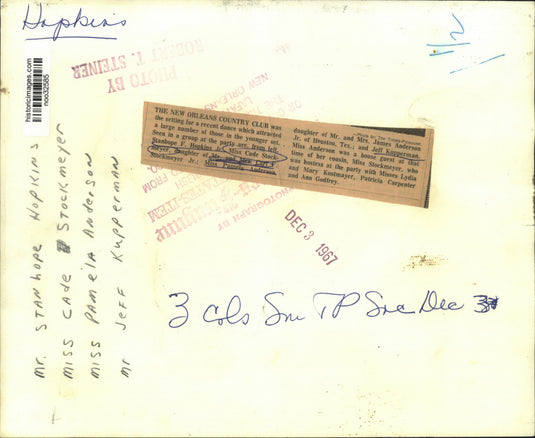 Hopkins
1/2
historicimages.com
noo32585
PHOTO BY
ROBERT T. STEINER
THE NEW ORLEANS COUNTRY CLUB was
the setting for a recent dance which attracted
a large number of those in the younger set.
Seen in a group at the party are, from left,
Stanhope F. Hopkins Jr., Miss Cade Stock-
meyer, daughter of Mr. and Mrs.
Stockmeyer Jr.; Miss Pamela Anderson,
daughter of Mr. and Mrs. James Anderson
Jr. of Houston, Tex., and Jeff Kupperman.
Miss Anderson was a house guest at the
time of her cousin, Miss Stockmeyer, who
was hostess at the party with Misses Lydia
and Mary Kostmayer, Patricia Carpenter
and Ann Godfrey.
NEW ORLEANS
STATES-ITEM
PHOTOGRAPH BY
DEC 3 1967
Mr. STANHOPE HOPKINS
MISS CADE STOCKMEYER
MISS PAMELA ANDERSON
Mr JEFF KUPPERMAN
3 cols Sun TP Soc Dec 3